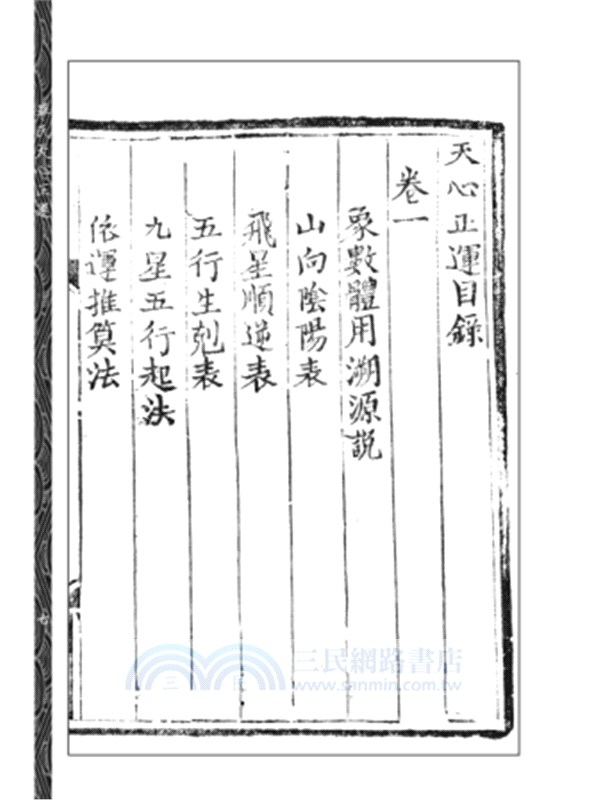 天心正運目錄
卷一
象數體用溯源說
山向陰陽表
飛星順逆表
五行生剋表
九星五行起法
依運推算法
七
三民網路書店
www.sanmin.com.tw